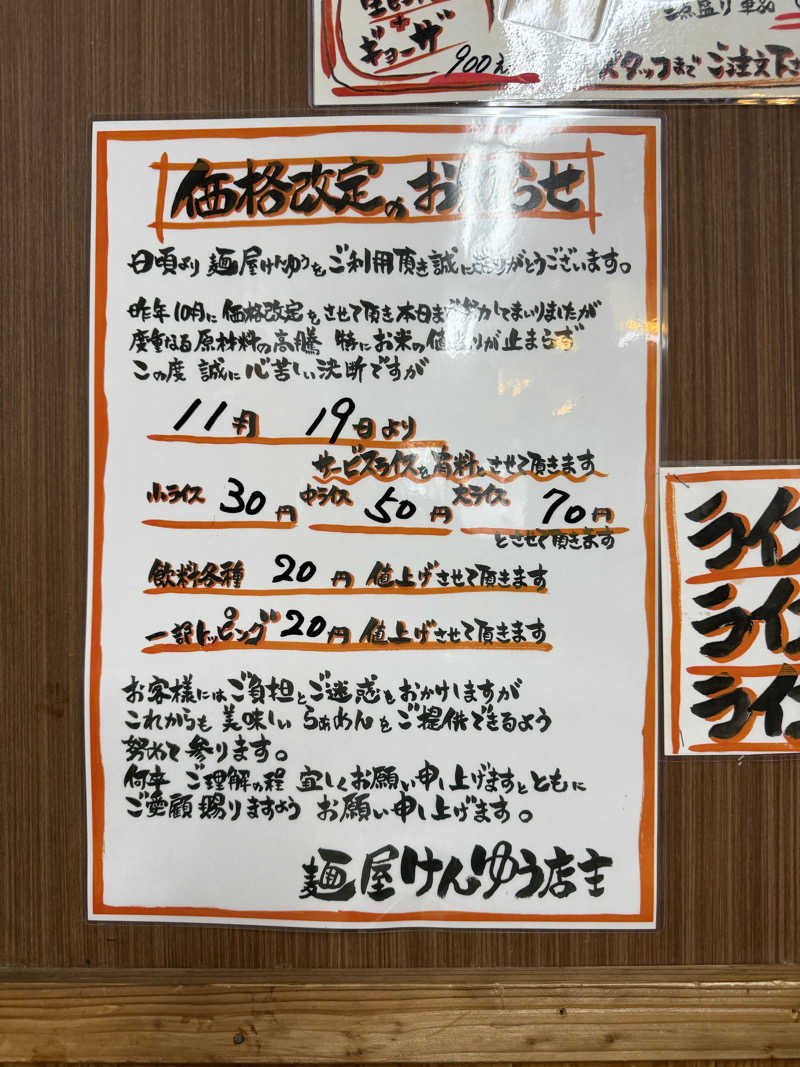 ギョーザ
900
スタッフまでご注文下さ
価格改定のお知らせ
日頃より 麺屋けんゆうをご利用頂き誠にありがとうございます。
昨年10月に価格改定をさせて頂き本日まで努力してまいりましたが
度重なる原材料の高騰 特にお米の値上りが止まらず
この度 誠に心苦しい決断ですが
11月 19日より
サービスライスを有料とさせて頂きます
小ライス 30円 中ライス 50円 大ライス 70円
とさせて頂きます
飲料各種 20円 値上げさせて頂きます
一部トッピング 20円 値上げさせて頂きます
お客様にはご負担とご迷惑をおかけしますが
これからも美味しいらぁめんをご提供できるよう
努めて参ります。
何卒 ご理解の程 宜しくお願い申し上げますとともに
ご愛顧賜りますよう お願い申し上げます。
麺屋けんゆう店主
ライ
ライ
ライ